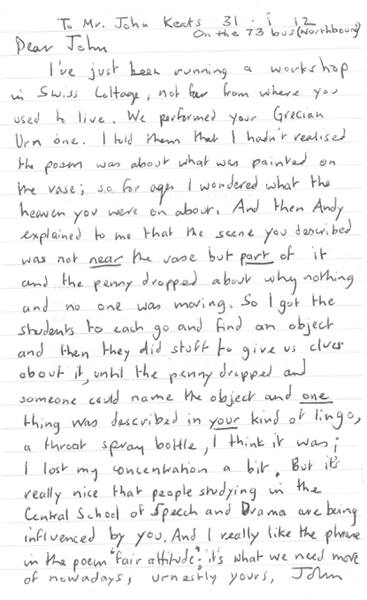 To Mr. John Keats 31 · i 12
On the 73 bus (Northbound)
Dear John
I've just been running a workshop
in Swiss Cottage, not far from where you
used to live. We performed your Grecian
Urn one. I told them that I hadn't realised
the poem was about what was painted on
the vase; so for ages I wondered what the
heaven you were on about. And then Andy
explained to me that the scene you described
was not near the vase but part of it
and the penny dropped about why nothing
and no one was moving. So I got the
students to each go and find an object
and then they did stuff to give us clues
about it, until the penny dropped and
someone could name the object and one
thing was described in your kind of lingo,
a throat spray bottle, I think it was;
I lost my concentration a bit. But it's
really nice that people studying in the
Central School of Speech and Drama are being
influenced by you. And I really like the phrase
in the poem "fair attitude": it's what we need more
of nowadays, urnestly yours, John